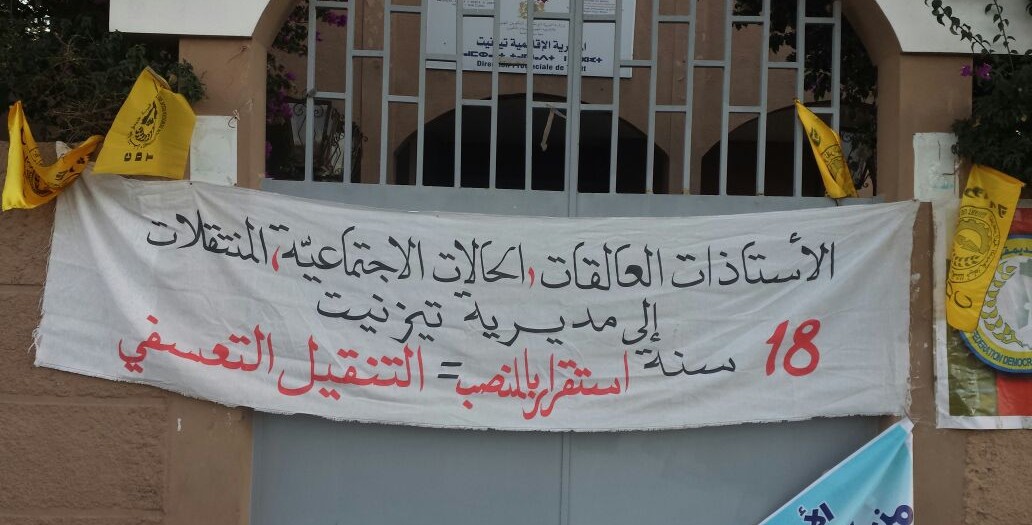 المديرية الإقليمية تيزنيت
Direction Provinciale de
CDT
الأستاذات العالقات، الحالات الاجتماعيّة، المنتقلات
إلى مديرية تيزنيت
18 سنة استقرار بالمنصب = التنقيل التعسفي
FEDERATION DEMOC